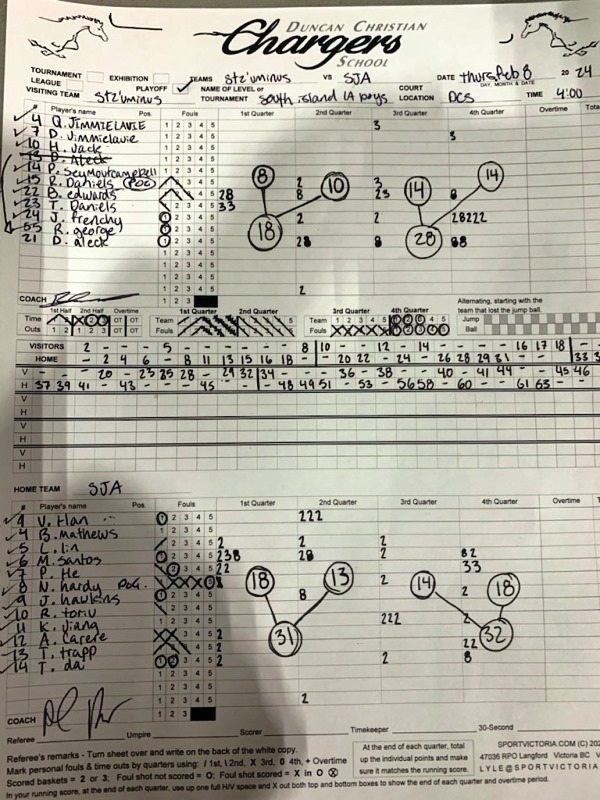 DUNCAN CHRISTIAN
Chargers
SCHOOL
TOURNAMENT EXHIBITION TEAMS Stz'uminus VS SJA DATE thurs Feb 8 20 24
LEAGUE PLAYOFF ✓ NAME OF LEVEL or DAY, MONTH & DATE
VISITING TEAM Stz'uminus TOURNAMENT South island 1A boys COURT LOCATION DCS TIME 4:00
# Player's name Pos. Fouls 1st Quarter 2nd Quarter 3rd Quarter 4th Quarter Overtime Total
4 Q. JIMMIELAVIE 1 2 3 4 5 3
7 D. Jimmielavie 1 2 3 4 5 3
10 H. Jack 1 2 3 4 5
13 D. Aleck
14 P. Seymourcampbell 8 14
15 R. Daniels (POG) 2 10 3 14
22 B. edwards 28 8 23 8
23 T. Daniels 33
24 J. frenchy 18 2 2 28222
55 R. george
21 D. aleck 28 8 28 88
1 2 3 4 5
1 2 3 4 5
1 2 3 4 5 2
COACH 1 2 3
1st Half 2nd Half Overtime 1st Quarter 2nd Quarter 3rd Quarter 4th Quarter Alternating, starting with the team that lost the jump ball.
Time Outs OT OT Team Fouls Team Fouls Jump Ball
VISITORS - 2 - - - 5 - - - - - - 8 10 - - 12 - 14 - - - - 16 17 18 -
HOME - 2 4 6 - 8 11 13 15 16 18 - - 20 22 - 24 - 26 28 29 31 - - - 33
V - - - 20 - 23 25 28 - 29 32 34 - - - 36 - 38 - - 40 - 41 44 - - 45 46
H 37 39 41 - 43 - - - 45 - - - 48 49 51 - 53 - 56 58 - 60 - - 61 63 - -
V
H
V
H
V
H
HOME TEAM SJA
# Player's name Pos. Fouls 1st Quarter 2nd Quarter 3rd Quarter 4th Quarter Overtime
4 V. Han 1 2 3 4 5 222
4 B. Mathews 1 2 3 4 5
5 L. lin 2 2 2
6 M. Santos 238 28 2 82
7 P. He 22 33
8 N. hardy POG. 18 13 2 14 2 18
9 J. hawkins 8
10 R. toriv
11 K. Jiang 222
12 A. Carere 2 31 32
13 T. trapp 2 22
14 T. dai 2 2 8
1 2 3 4 5
1 2 3 4 5
1 2 3 4 5 2
COACH 1 2 3
Referee Umpire Scorer Timekeeper 30-Second
Referee's remarks - Turn sheet over and write on the back of the white copy.
Mark personal fouls & time outs by quarters using: / 1st, \ 2nd, X 3rd, 0 4th, + Overtime
Scored baskets = 2 or 3; Foul shot not scored = O; Foul shot scored = X in O ⊗
In your running score, at the end of each quarter, use up one full H/V space and X out both top and bottom boxes to show end of each quarter and overtime period.
At the end of each quarter, total up the individual points and make sure it matches the running score.
SPORTVICTORIA.COM (C) 202
47036 RPO Langford Victoria BC V
LYLE@SPORTVICTORIA